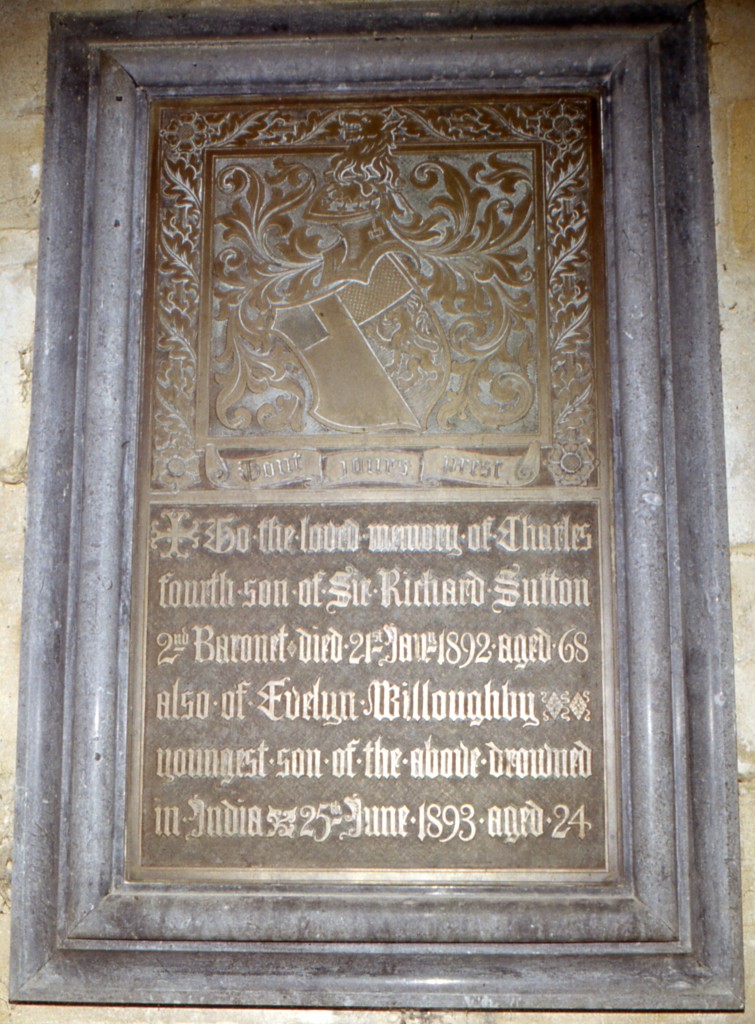 Tout jours prest
To·the·loved·memory·of·Charles
fourth·son·of·Sir·Richard·Sutton
2nd·Baronet·died·21st·Jany·1892·aged·68
also·of·Evelyn·Willoughby
youngest·son·of·the·above·drowned
in·India 25th·June·1893·aged·24